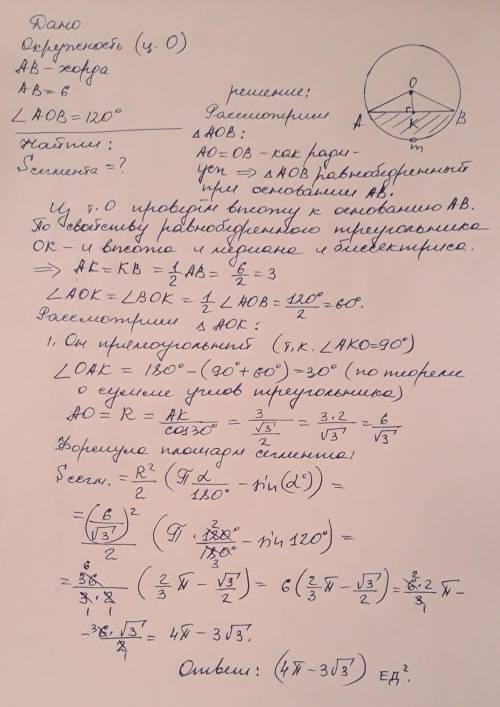 Дано
Окружность (ц. О)
АВ - хорда
АВ = 6
∠АОВ = 120°
Найти:
Sсегмента = ?
О
А
В
К
m
решение:
Рассмотрим
△АОВ:
АО = ОВ - как ради-
усы ⟹ △АОВ равнобедренный
при основании АВ.
Из т. О проведём высоту к основанию АВ.
По свойству равнобедренного треугольника
ОК - и высота и медиана и биссектриса.
⟹ АК = КВ = 1/2 АВ = 6/2 = 3
∠АОК = ∠ВОК = 1/2 ∠АОВ = 120°/2 = 60°.
Рассмотрим △АОК:
1. Он прямоугольный (т.к. ∠АКО = 90°)
∠ОАК = 180° - (90° + 60°) = 30° (по теореме
о сумме углов треугольника)
АО = R = АК/cos30° = 3/(√3/2) = 3·2/√3 = 6/√3
Формула площади сегмента:
Sсегм. = R²/2 (П α/180° - sin(α°)) =
= (6/√3)²/2 (П · 120°/180° - sin 120°) =
= 36/(3·2) (2/3 π - √3/2) = 6(2/3 π - √3/2) = 6·2/3 π -
- 6·√3/2 = 4π - 3√3.
Ответ: (4π - 3√3) ед².